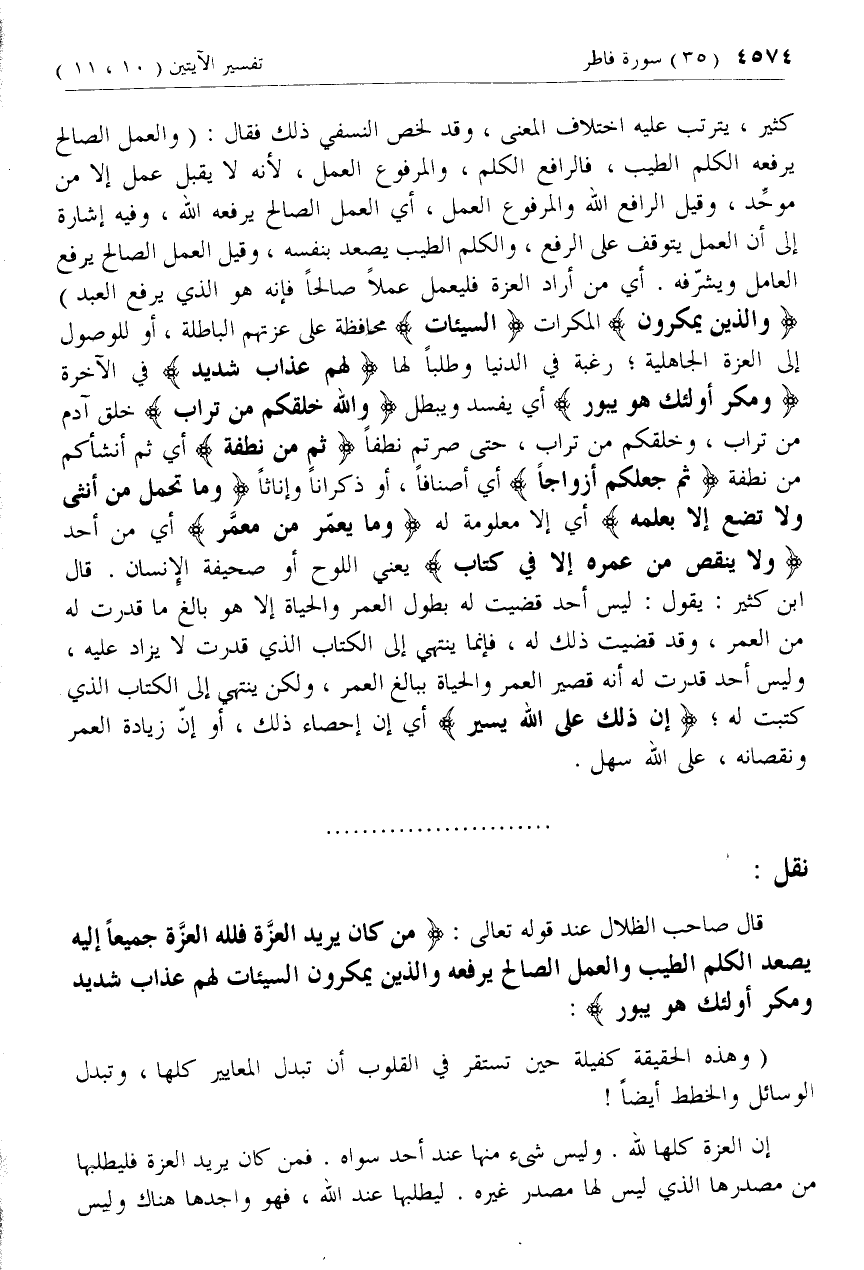 ٤٥٧٤ (٣٥) سورة فاطر تفسير الآيتين (١٠ ، ١١)
كثير ، يترتب عليه اختلاف المعنى ، وقد لخص النسفي ذلك فقال : ( والعمل الصالح
يرفعه الكلم الطيب ، فالرافع الكلم ، والمرفوع العمل ، لأنه لا يقبل عمل إلا من
موحِّد ، وقيل الرافع الله والمرفوع العمل ، أي العمل الصالح يرفعه الله ، وفيه إشارة
إلى أن العمل يتوقف على الرفع ، والكلم الطيب يصعد بنفسه ، وقيل العمل الصالح يرفع
العامل ويشرّفه . أي من أراد العزة فليعمل عملاً صالحاً فإنه هو الذي يرفع العبد )
﴿ والذين يمكرون ﴾ المكرات ﴿ السيئات ﴾ محافظة على عزتهم الباطلة ، أو للوصول
إلى العزة الجاهلية ؛ رغبة في الدنيا وطلباً لها ﴿ لهم عذاب شديد ﴾ في الآخرة
﴿ ومكر أولئك هو يبور ﴾ أي يفسد ويبطل ﴿ والله خلقكم من تراب ﴾ خلق آدم
من تراب ، وخلقكم من تراب ، حتى صرتم نطفاً ﴿ ثم من نطفة ﴾ أي ثم أنشأكم
من نطفة ﴿ ثم جعلكم أزواجاً ﴾ أي أصنافاً ، أو ذكراناً وإناثاً ﴿ وما تحمل من أنثى
ولا تضع إلا بعلمه ﴾ أي إلا معلومة له ﴿ وما يعمّر من معمَّر ﴾ أي من أحد
﴿ ولا ينقص من عمره إلا في كتاب ﴾ يعني اللوح أو صحيفة الإنسان . قال
ابن كثير : يقول : ليس أحد قضيت له بطول العمر والحياة إلا هو بالغ ما قدرت له
من العمر ، وقد قضيت ذلك له ، فإنما ينتهي إلى الكتاب الذي قدرت لا يزاد عليه ،
وليس أحد قدرت له أنه قصير العمر والحياة ببالغ العمر ، ولكن ينتهي إلى الكتاب الذي
كتبت له ؛ ﴿ إن ذلك على الله يسير ﴾ أي إن إحصاء ذلك ، أو إنّ زيادة العمر
ونقصانه ، على الله سهل .
.........................
نقل :
قال صاحب الظلال عند قوله تعالى : ﴿ من كان يريد العزَّة فلله العزَّة جميعاً إليه
يصعد الكلم الطيب والعمل الصالح يرفعه والذين يمكرون السيئات لهم عذاب شديد
ومكر أولئك هو يبور ﴾ :
( وهذه الحقيقة كفيلة حين تستقر في القلوب أن تبدل المعايير كلها ، وتبدل
الوسائل والخطط أيضاً !
إن العزة كلها لله . وليس شىء منها عند أحد سواه . فمن كان يريد العزة فليطلبها
من مصدرها الذي ليس لها مصدر غيره . ليطلبها عند الله ، فهو واجدها هناك وليس